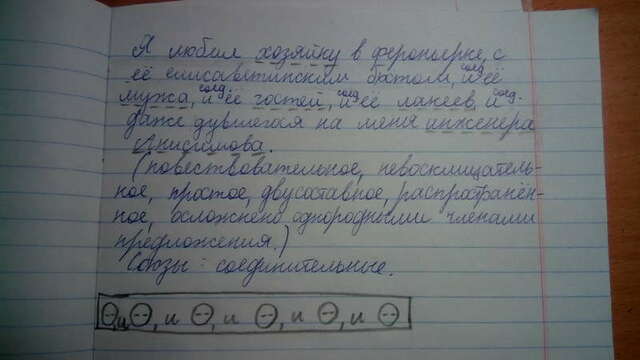 Я любил хозяйку в фероньерке, с
её елисаветинским бюстом, и соед. её
мужа, и соед. её гостей, и соед. её лакеев, и соед.
даже дувшегося на меня инженера
Анисимова.
(повествовательное, невосклицатель-
ное, простое, двусоставное, распространён-
ное, осложнено однородными членами
предложения.)
Союзы: соединительные.
, и , и , и , и , и